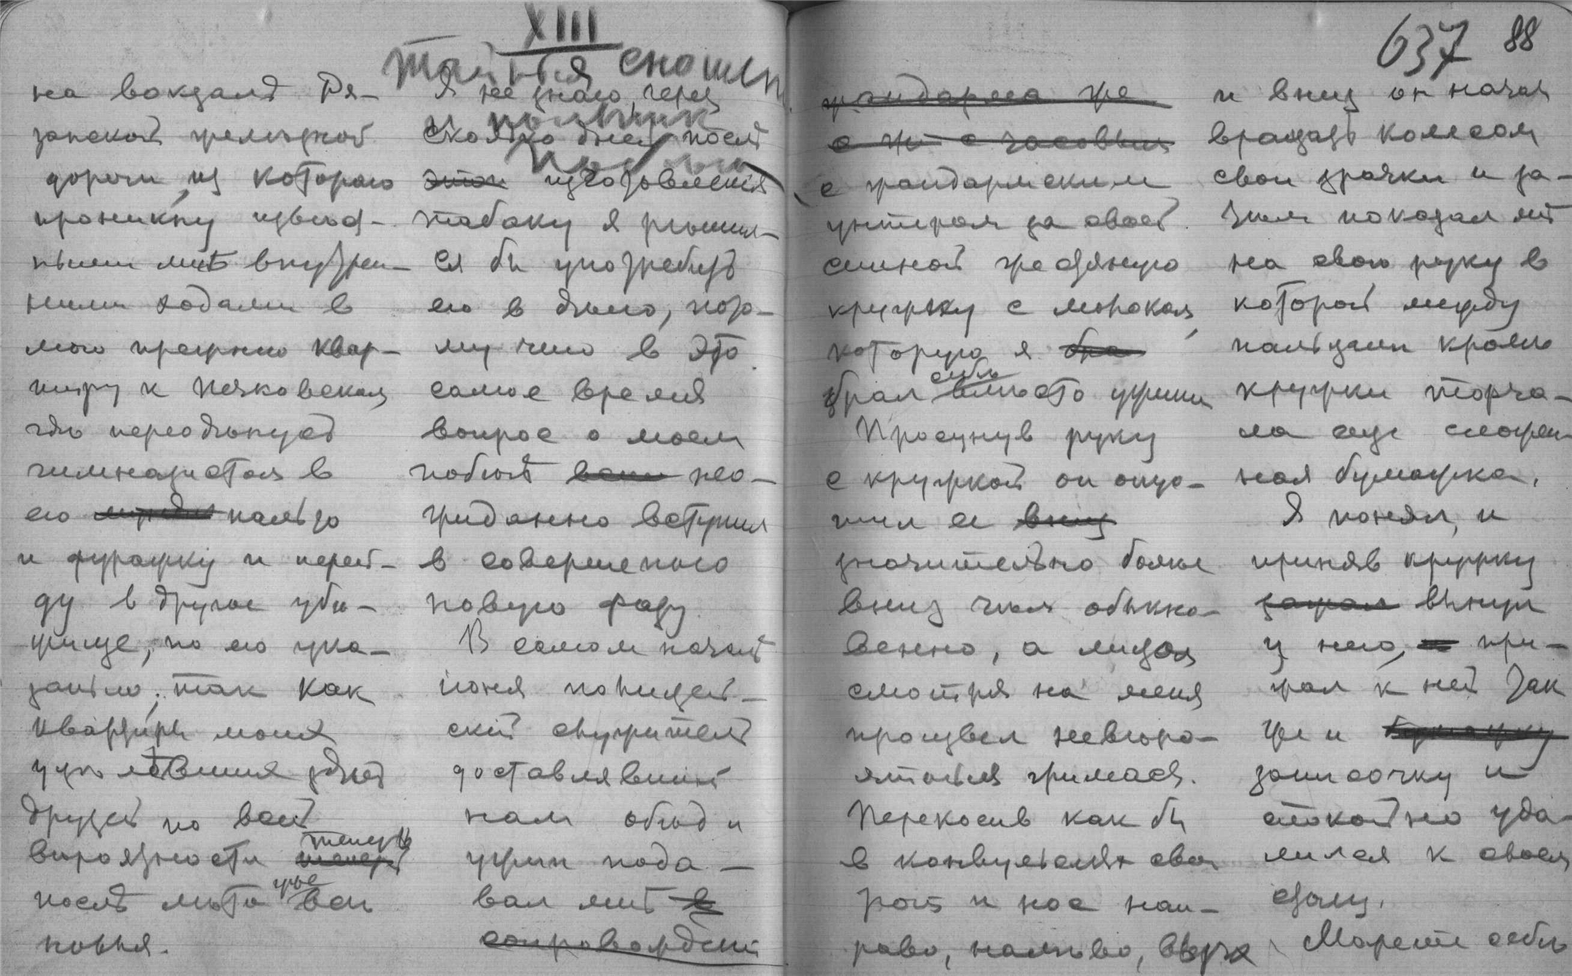 XIII
Тайныя сношен
на вокзалѣ Ря-
занской желѣзной
дороги, из котораго
проникну извѣст-
ными мнѣ внутрен-
ними ходами в
мою прежнюю квар-
тиру к Печковской
гдѣ переодѣнусь
гимназистом в
его пальто
и фуражку и перей-
ду в другое убѣ-
жище, по его ука-
занью, так как
квартиры моих
друзей по всей
вѣроятности теперь
послѣ лѣта уже всѣ
новыя.
Я не знаю, через
сколько дней послѣ
этой изготовления
табаку я рѣшил-
ся бы употребить
его в дѣло, пото-
му что в это
самое время
вопрос о моем
побѣгѣ нео-
жиданно вступил
в совершенно
новую фазу.
В самом началѣ
іюня полицей-
скій служитель
доставлявшій
нам обѣд и
ужин пода-
вал мнѣ в
сопровожденіи
637 88
жандарма же
с часовым
с жандармским
унтером за своей
спиной жестяную
кружку с молоком,
которую я
брал себѣ вмѣсто ужина
Просунув руку
с кружкой он опус-
тил ее вниз
значительно болѣе
вниз чѣм обыкно-
венно, а лицом
смотря на меня
произвел невѣро-
ятныя гримасы.
Перекосив как бы
в конвульсиях свой
рот и нос нап-
раво, налѣво, вверх
и вниз он начал
вращать колесом
свои зрачки и за-
тѣм показал мнѣ
на свою руку в
которой между
пальцами кромѣ
кружки торча-
ла еще сложен-
ная бумажка.
Я понял, и
приняв кружку
зажал вынул
у него, при-
жал к ней так
же и бумажку
записочку и
спокойно уда-
лился к своему
столу.
Можете себѣ